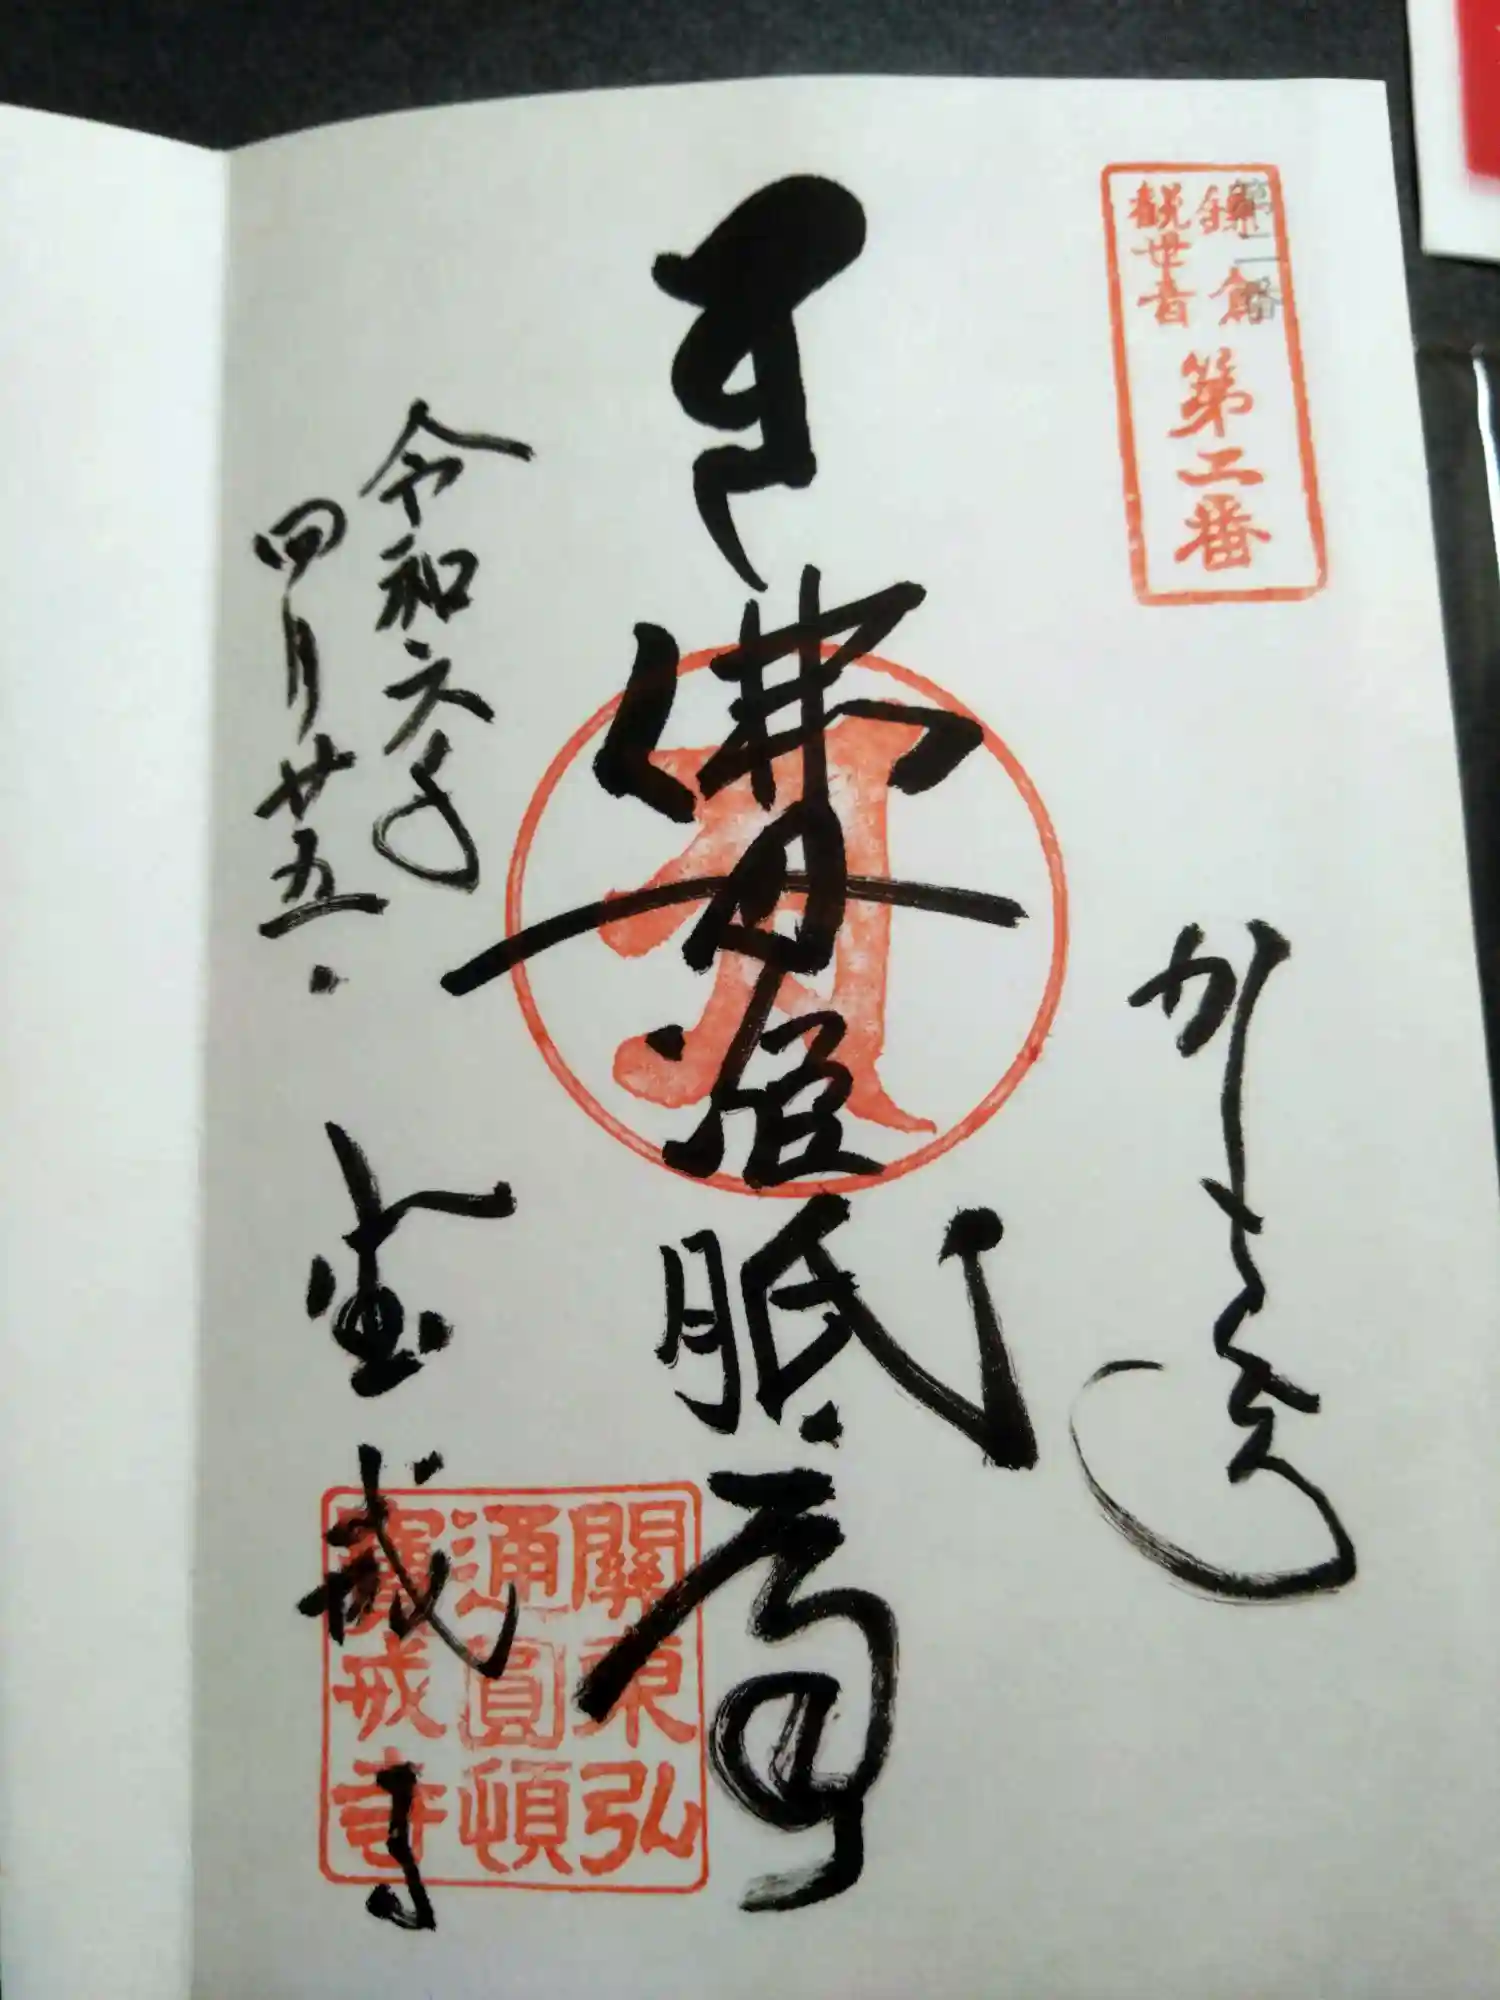 第二番
鎌倉
観世音
第二番
かまくら
佛母准胝尊
令和六年
四月廿五日
宝戒寺
關東弘
通圓頓
寶戒寺